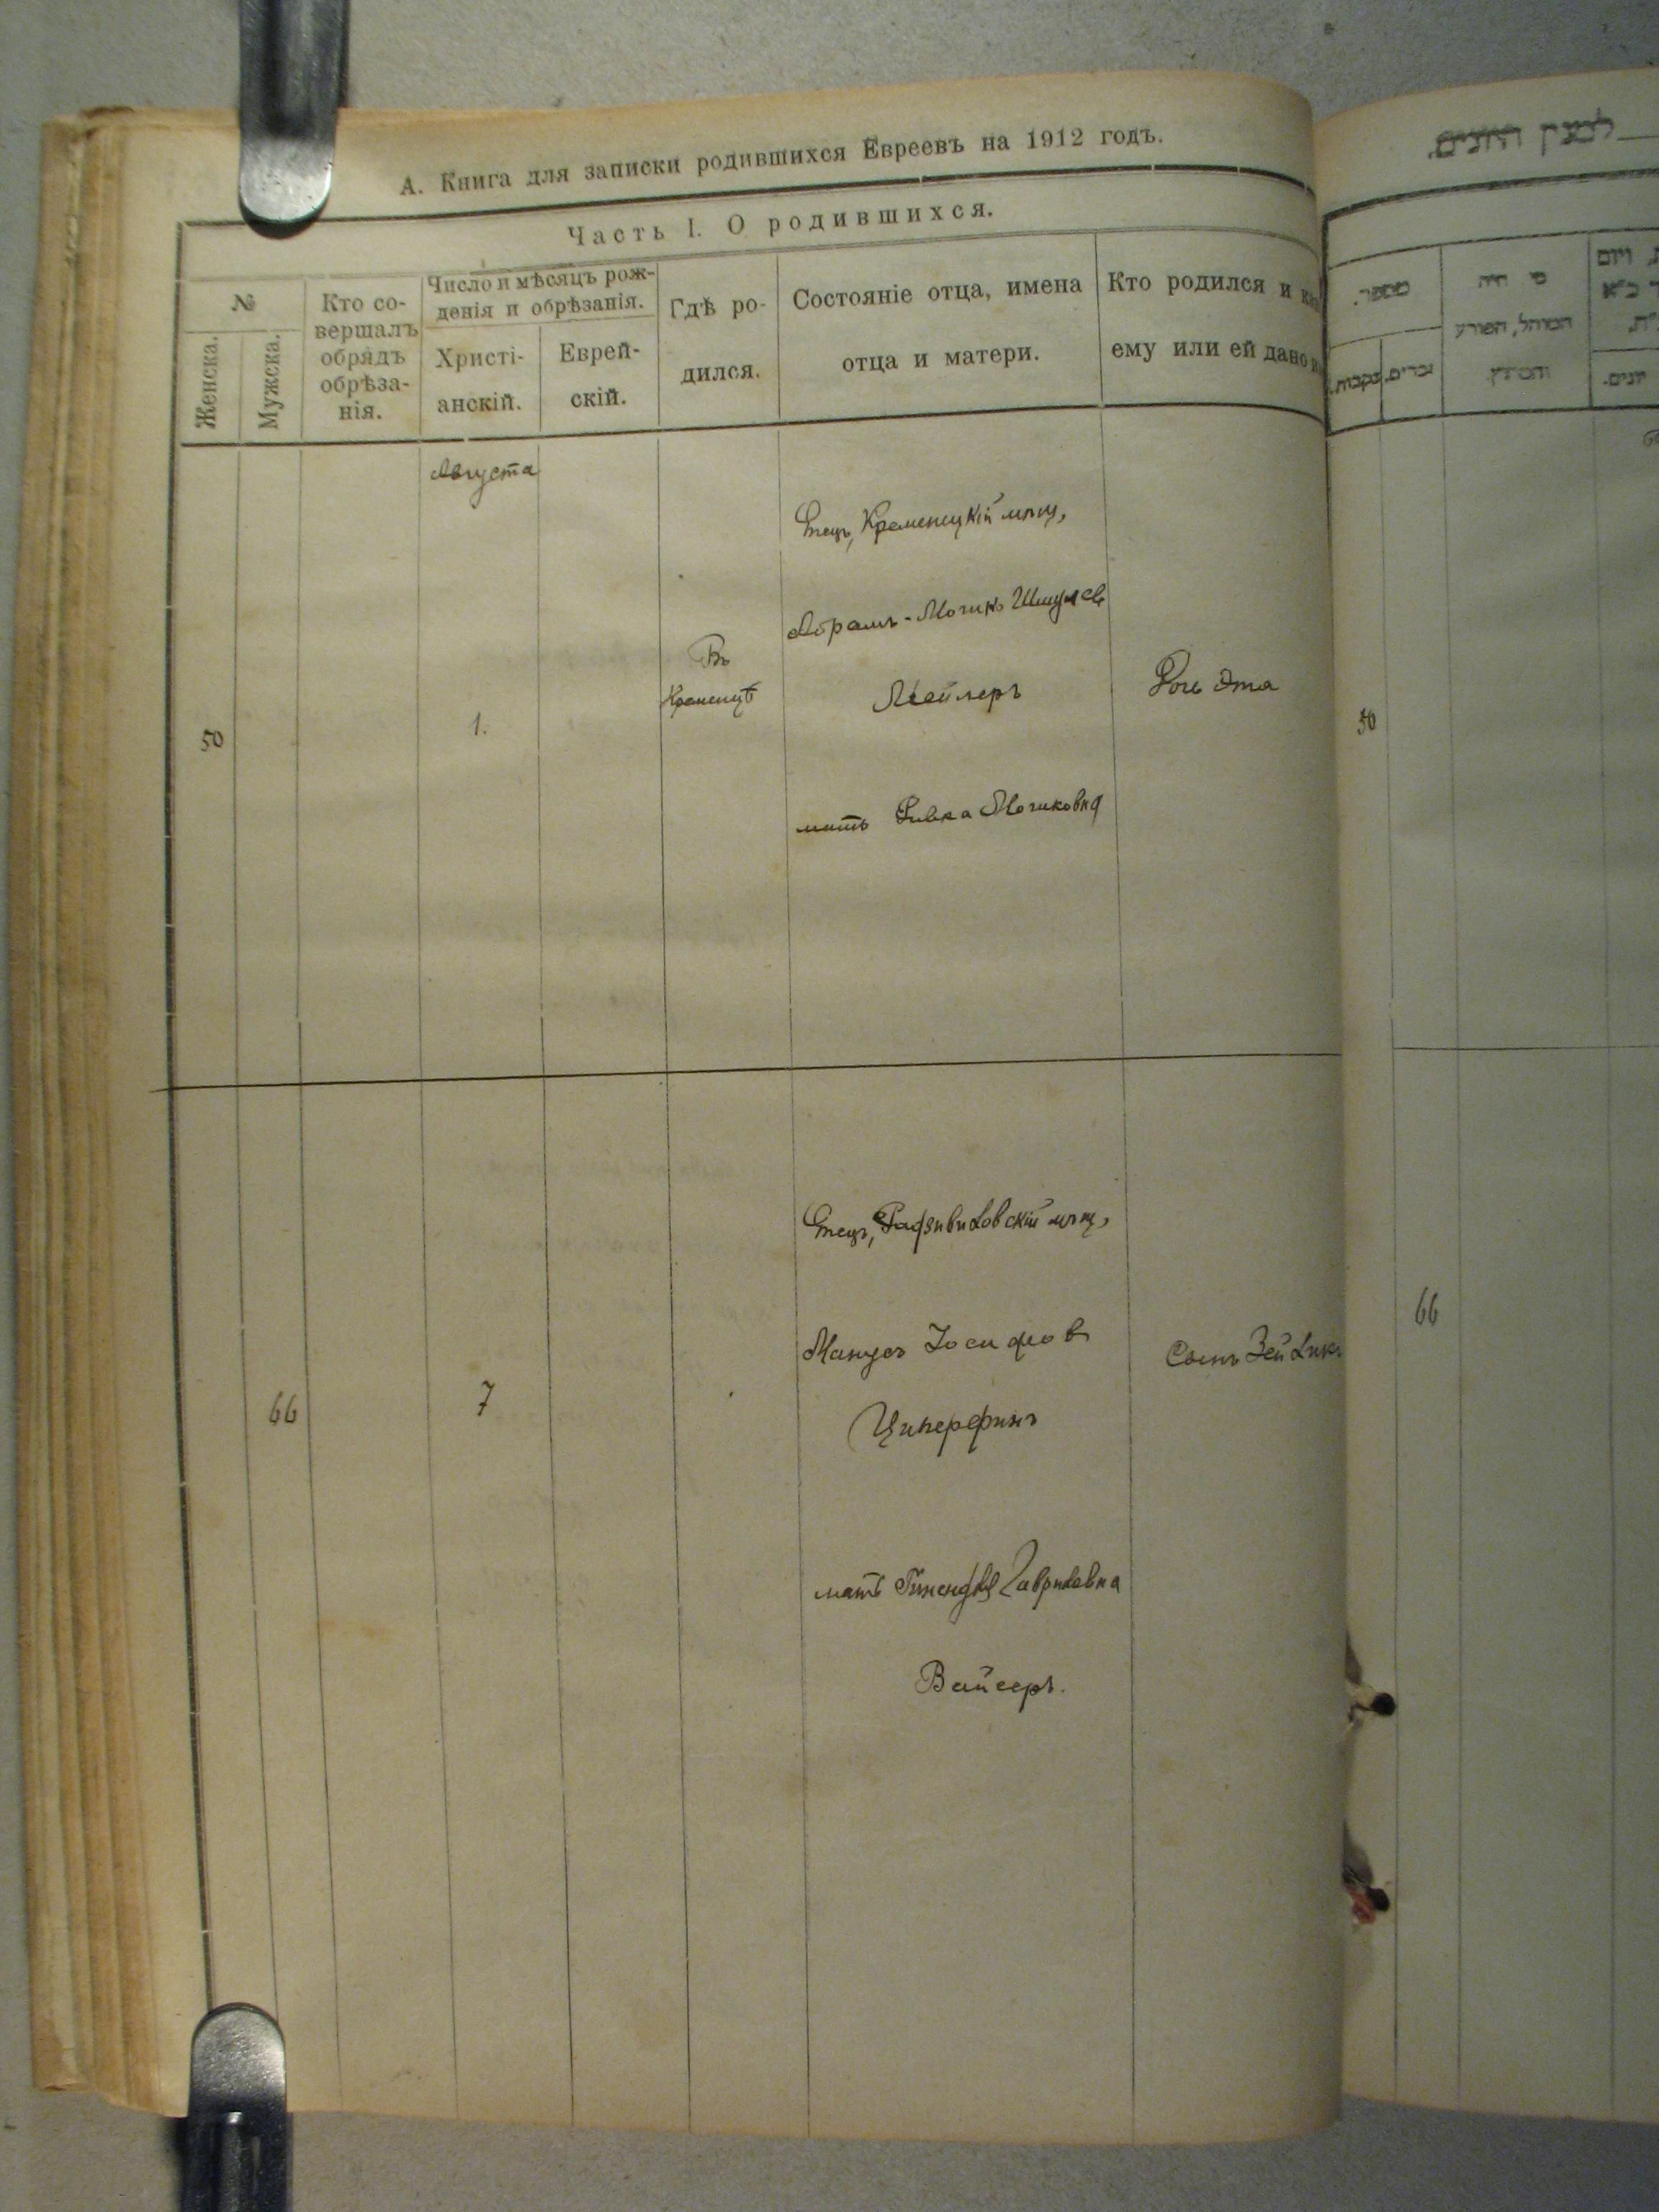 А. Книга для записки родившихся Евреевъ на 1912 годъ.
Часть I. О родившихся.
№
Женска.
Мужска.
Кто со-
вершалъ
обрядъ
обрѣза-
нія.
Число и мѣсяцъ рож-
денія и обрѣзанія.
Христі-
анскій.
Еврей-
скій.
Гдѣ ро-
дился.
Состояніе отца, имена
отца и матери.
Кто родился и
ему или ей дано
Августа
50
1.
Въ
Кременцѣ
Отецъ, Кременецкій мѣщ,
Абрамъ-Мошко Шмулев
Мейлеръ
мать Ривка Мошковна
Дочь Эта
66
7
Отецъ, мѣщ,
Манусъ Іосифов
Циперфинъ
мать
Вайсеръ.
Сынъ
לחצק היונים.
מספר.
נקבות.
זכרים.
מי היה
המוהל, הפורע
והמוצץ
ויום
יונים.
50
66